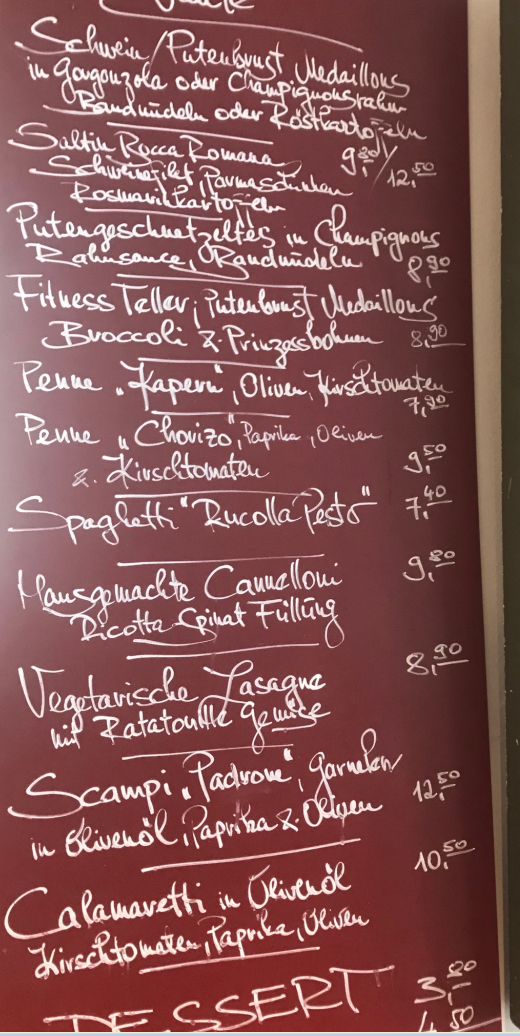 Schwein/Putenbrust Medaillons
in Gorgonzola oder Champignonsrahm
Bandnudeln oder Röstkartoffeln
9,80/12,50
Saltin Rocca Romana
Schweinefilet, Parmaschinken
Rosmarinkartoffeln
Putengeschnetzeltes in Champignons
Rahmsauce, Bandnudeln 8,90
Fitness Teller, Putenbrust Medaillons
Broccoli & Prinzessbohnen 8,90
Penne "Kapern", Oliven, Kirschtomaten
7,90
Penne "Chorizo", Paprika, Oliven
& Kirschtomaten 9,50
Spaghetti "Rucolla Pesto" 7,40
Hausgemachte Cannelloni 9,80
Ricotta Spinat Füllung
Vegetarische Lasagne 8,90
mit Ratatouille Gemüse
Scampi "Padrone", Garnelen
in Olivenöl, Paprika & Oliven 12,50
Calamaretti in Olivenöl 10,50
Kirschtomaten, Paprika, Oliven
DESSERT 3,80
4,50